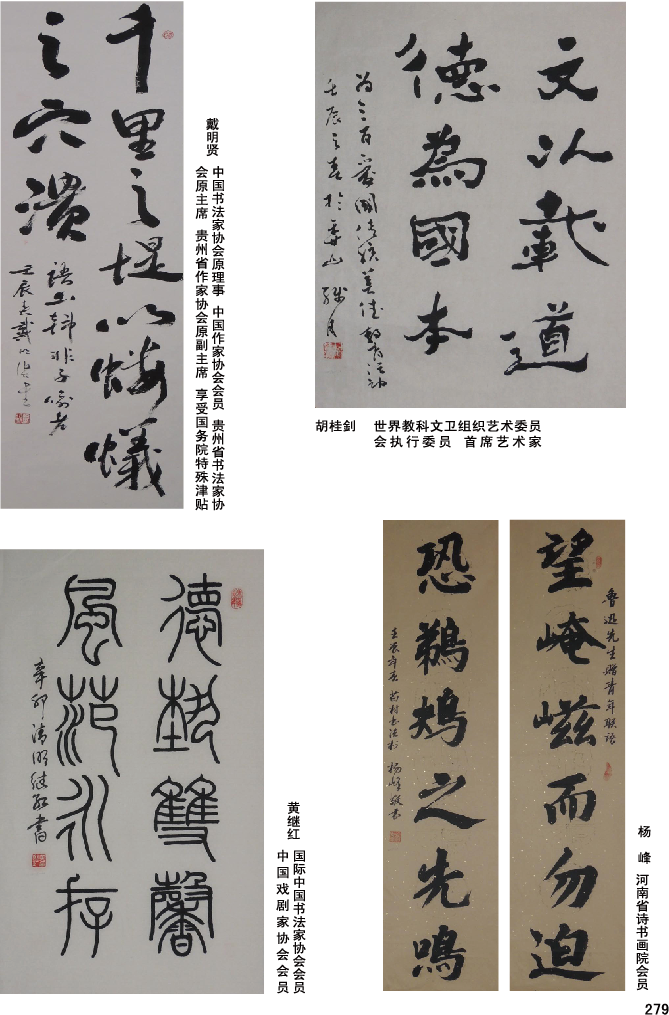 千里之堤以螻蟻
之穴潰
語出韩非子喻老
壬辰春戴明贤书
戴明贤
中国书法家协会原理事 中国作家协会会员 贵州省书法家协
会原主席 贵州省作家协会原副主席 享受国务院特殊津贴
文以載道
德為國本
壬辰之春於
胡桂剑 世界教科文卫组织艺术委员
会执行委员 首席艺术家
德艺雙馨
風范永存
辛卯清明继红書
黄继红
国际中国书法家协会会员
中国戏剧家协会会员
魯迅先生赠青年联语
望崦嵫而勿迫
恐鵜鴂之先鳴
壬辰年夏
杨峰敬书
杨峰 河南省诗书画院会员
279